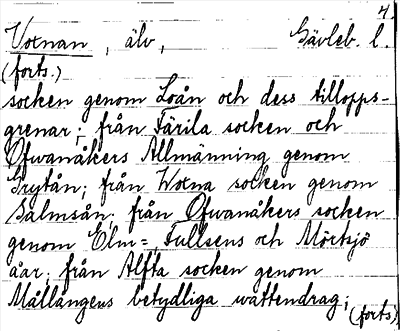 4.
Voxnan, älv, Gävleb. l.
(forts.)
socken genom Loån och dess tillopps-
grenar; från Färila socken och
Ofwanåkers Allmänning genom
Grytån; från Woxna socken genom
Galmsån; från Ofwanåkers socken
genom Elm=, Fullsens och Mörtsjö
åar; från Alfta socken genom
Mållångens betydliga wattendrag;
(forts)